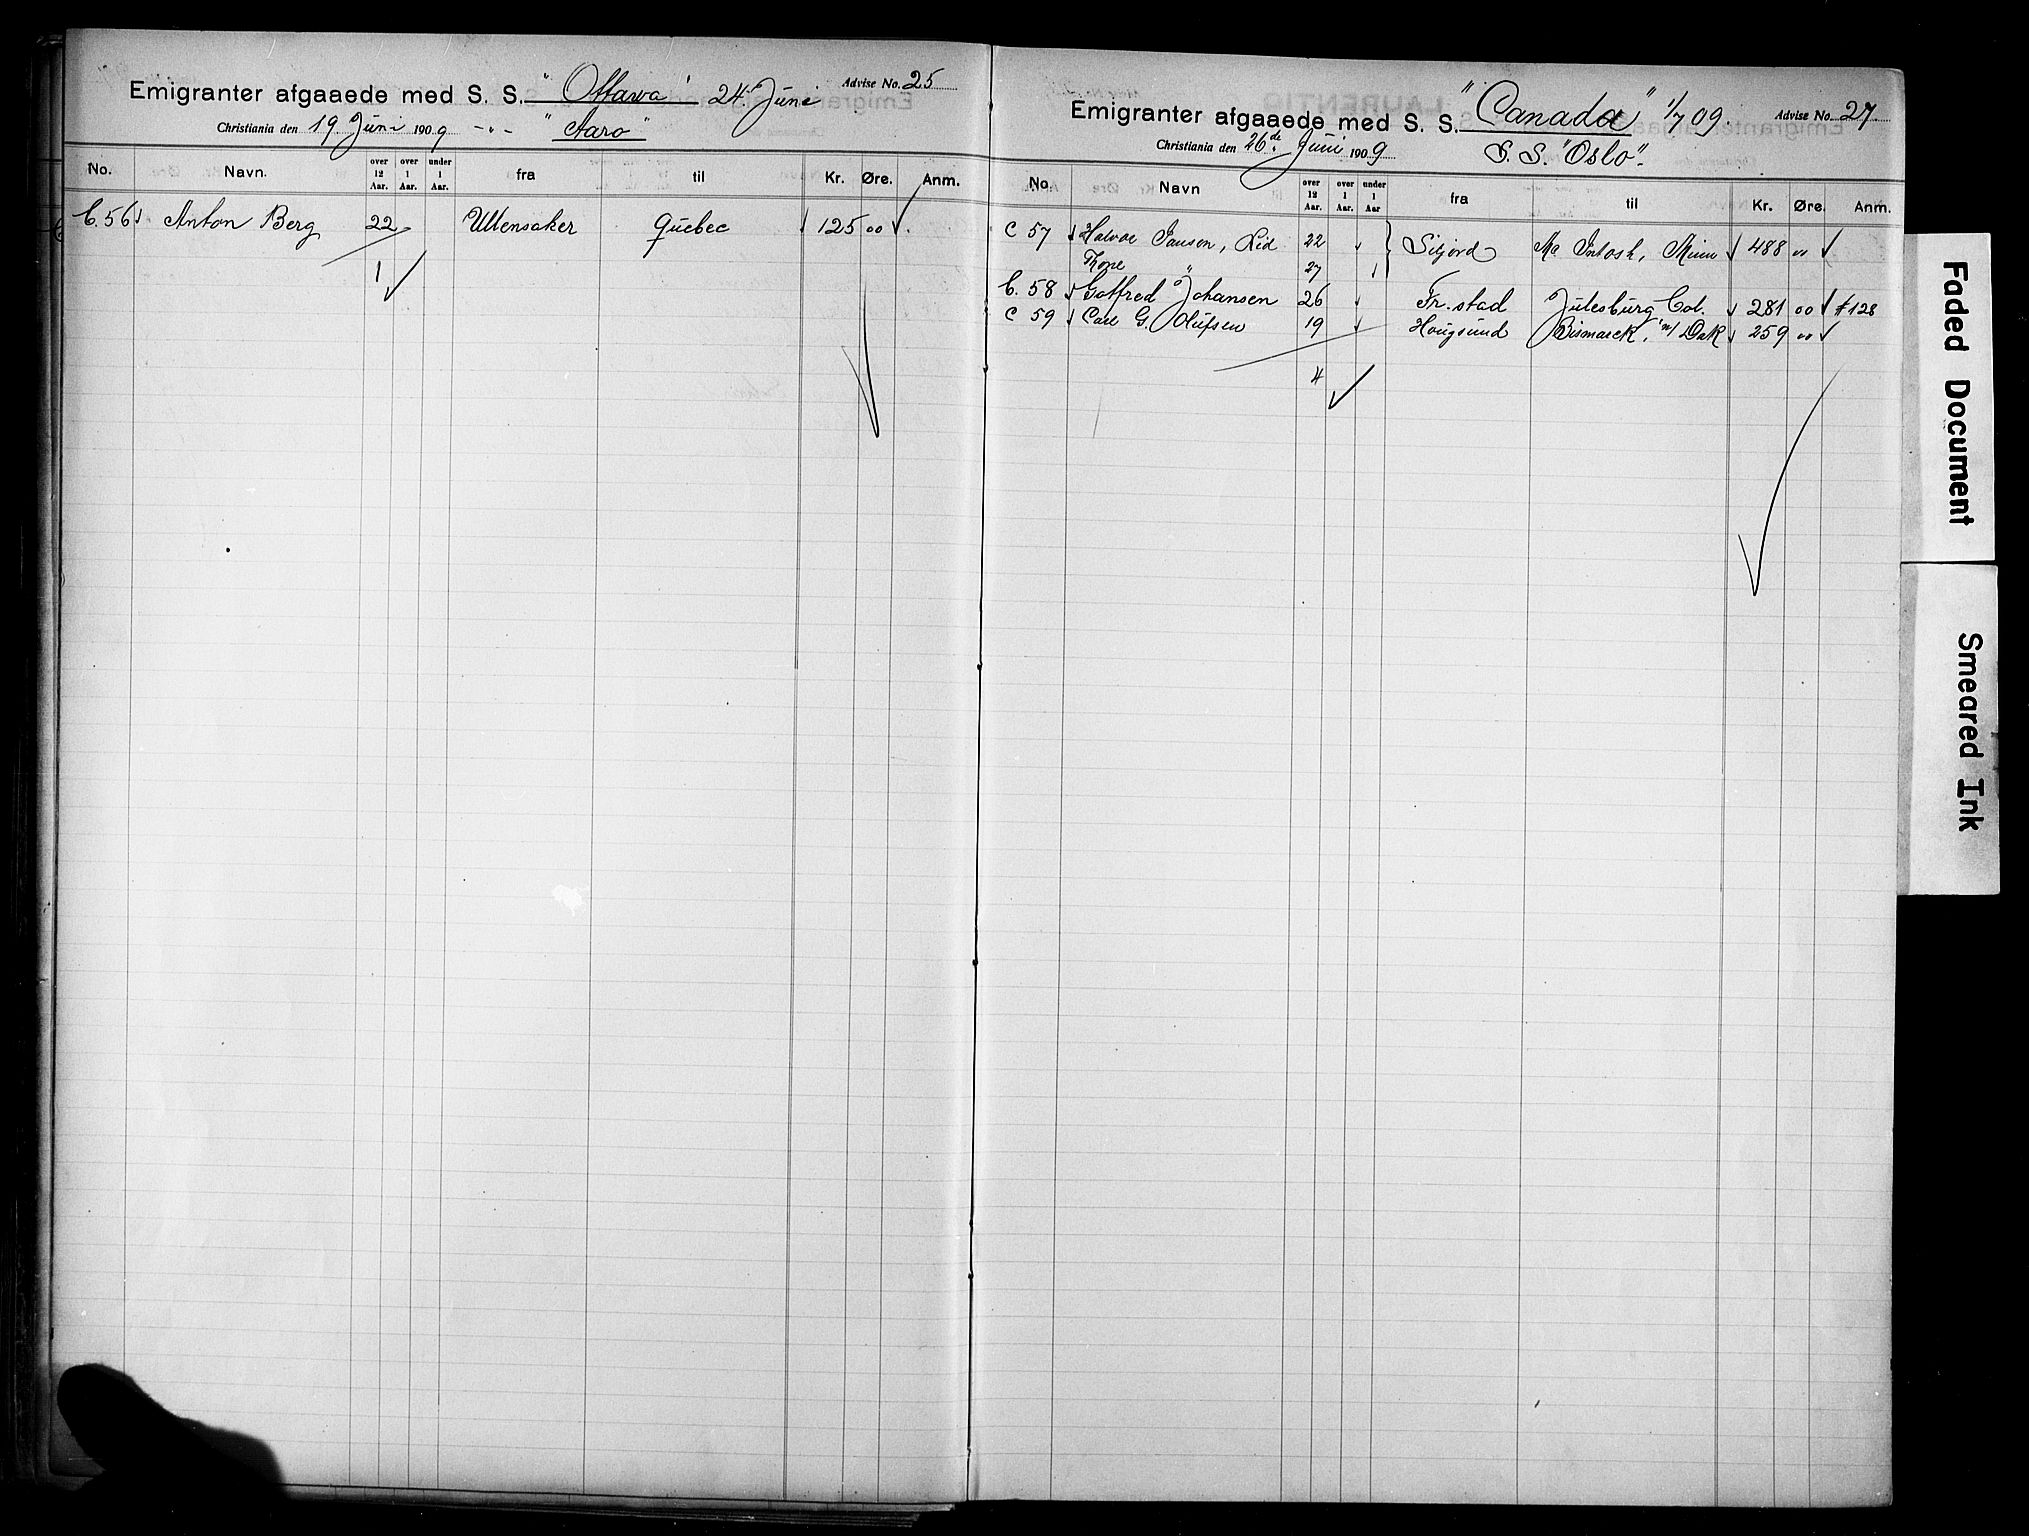 Emigranter afgaaede med S. S. "Ottawa" 24. Juni Advise No. 25
Christiania den 19 Juni 1909 -"- "Aaro"
No. Navn. over 12 Aar. over 1 Aar. under 1 Aar. fra til Kr. Øre. Anm.
C. 56 Anton Berg 22 Ullensaker Quebec 125 00
1
Emigranter afgaaede med S. S. "Canada" 1/7 09. Advise No. 27
Christiania den 26de Juni 1909 S. S. "Oslo".
No. Navn over 12 Aar. over 1 Aar. under 1 Aar fra til Kr. Øre. Anm.
C 57 Halvor Jansen, Lid 22 Siljord Mc Intosh, Minn 488 00
Tone " 27
C. 58 Gotfred Johansen 26 Fr. stad Julesburg Col. 281 00 #128
C 59 Carl G. Olufsen 19 Hougsund Bismarck, N/ Dak 259 00
4
Faded Document
Smeared Ink